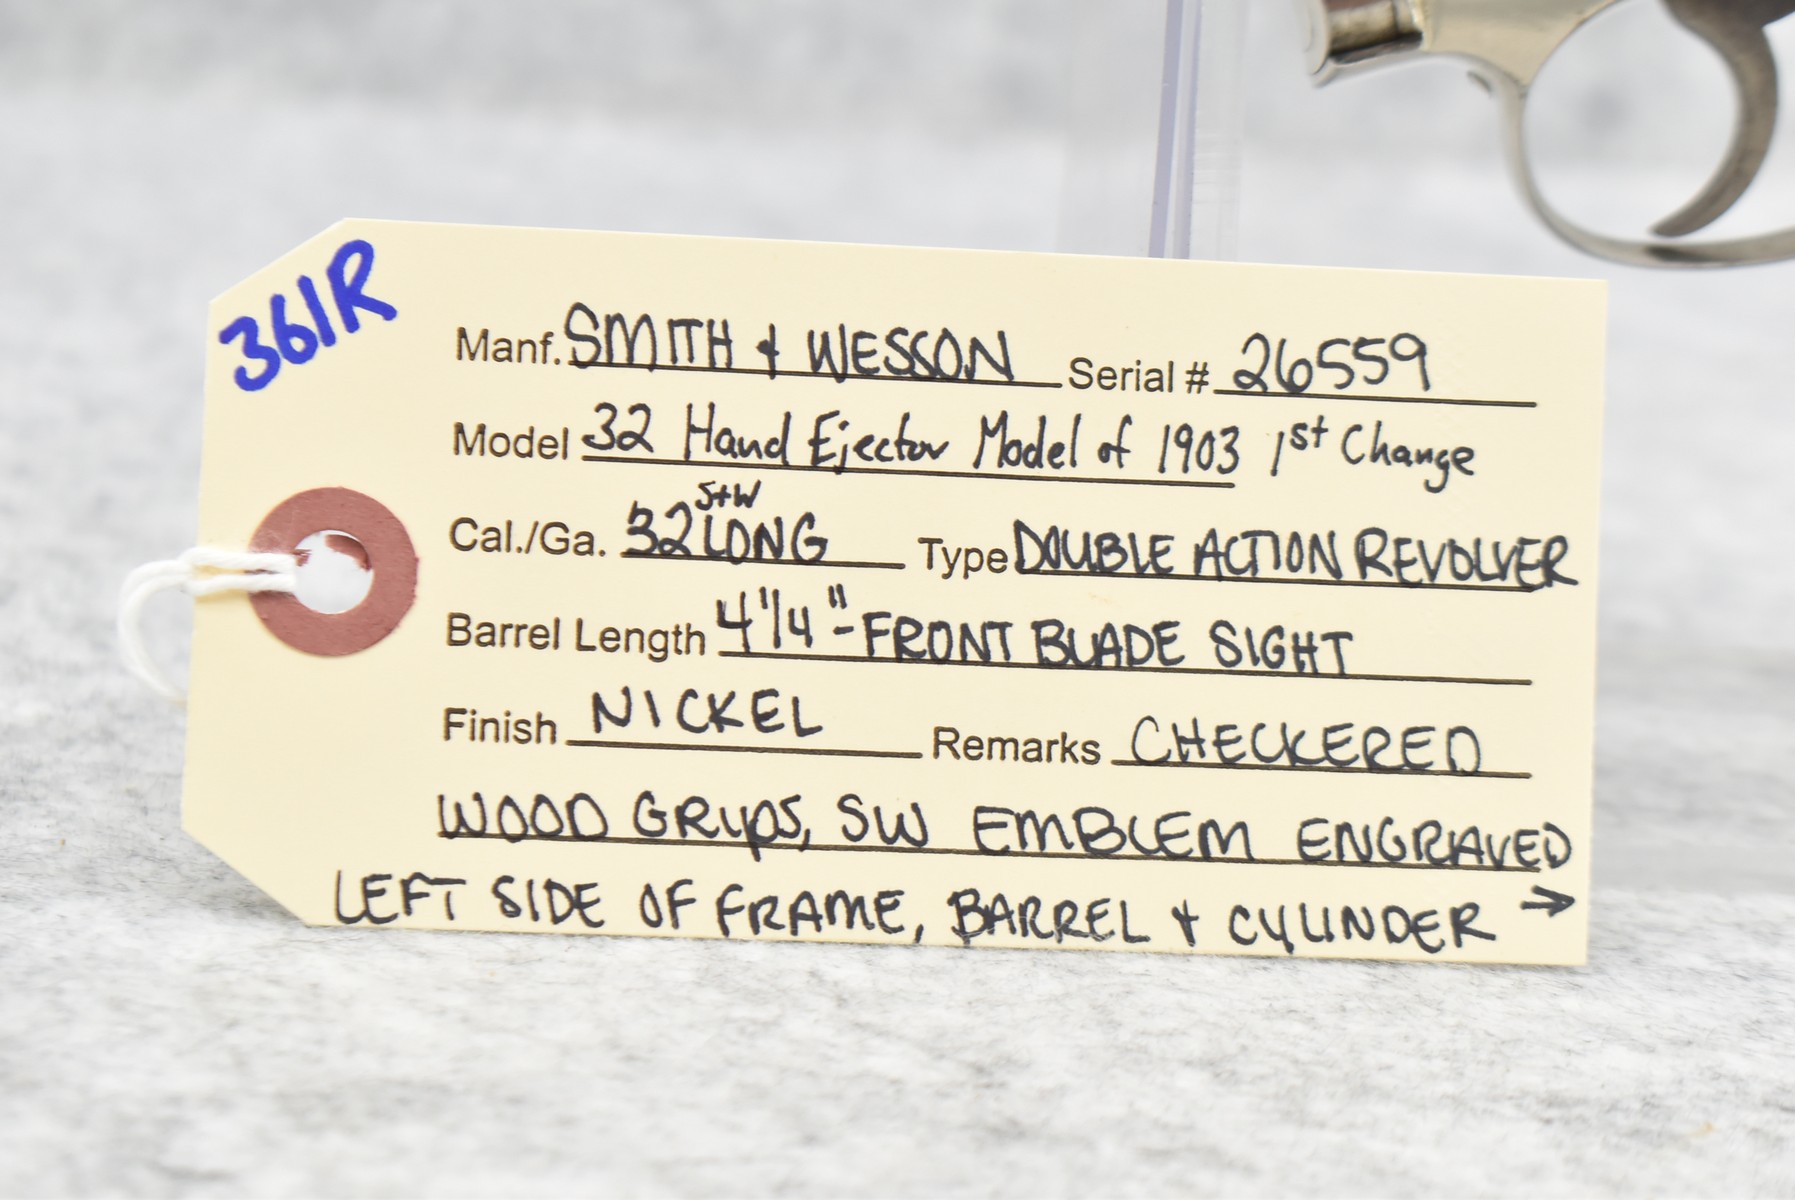 361R
Manf. SMITH + WESSON Serial # 26559
Model 32 Hand Ejector Model of 1903 1st Change
Cal./Ga. 32 S+W LONG Type DOUBLE ACTION REVOLVER
Barrel Length 4 1/4" - FRONT BLADE SIGHT
Finish NICKEL Remarks CHECKERED
WOOD GRIPS, SW EMBLEM ENGRAVED
LEFT SIDE OF FRAME, BARREL + CYLINDER →